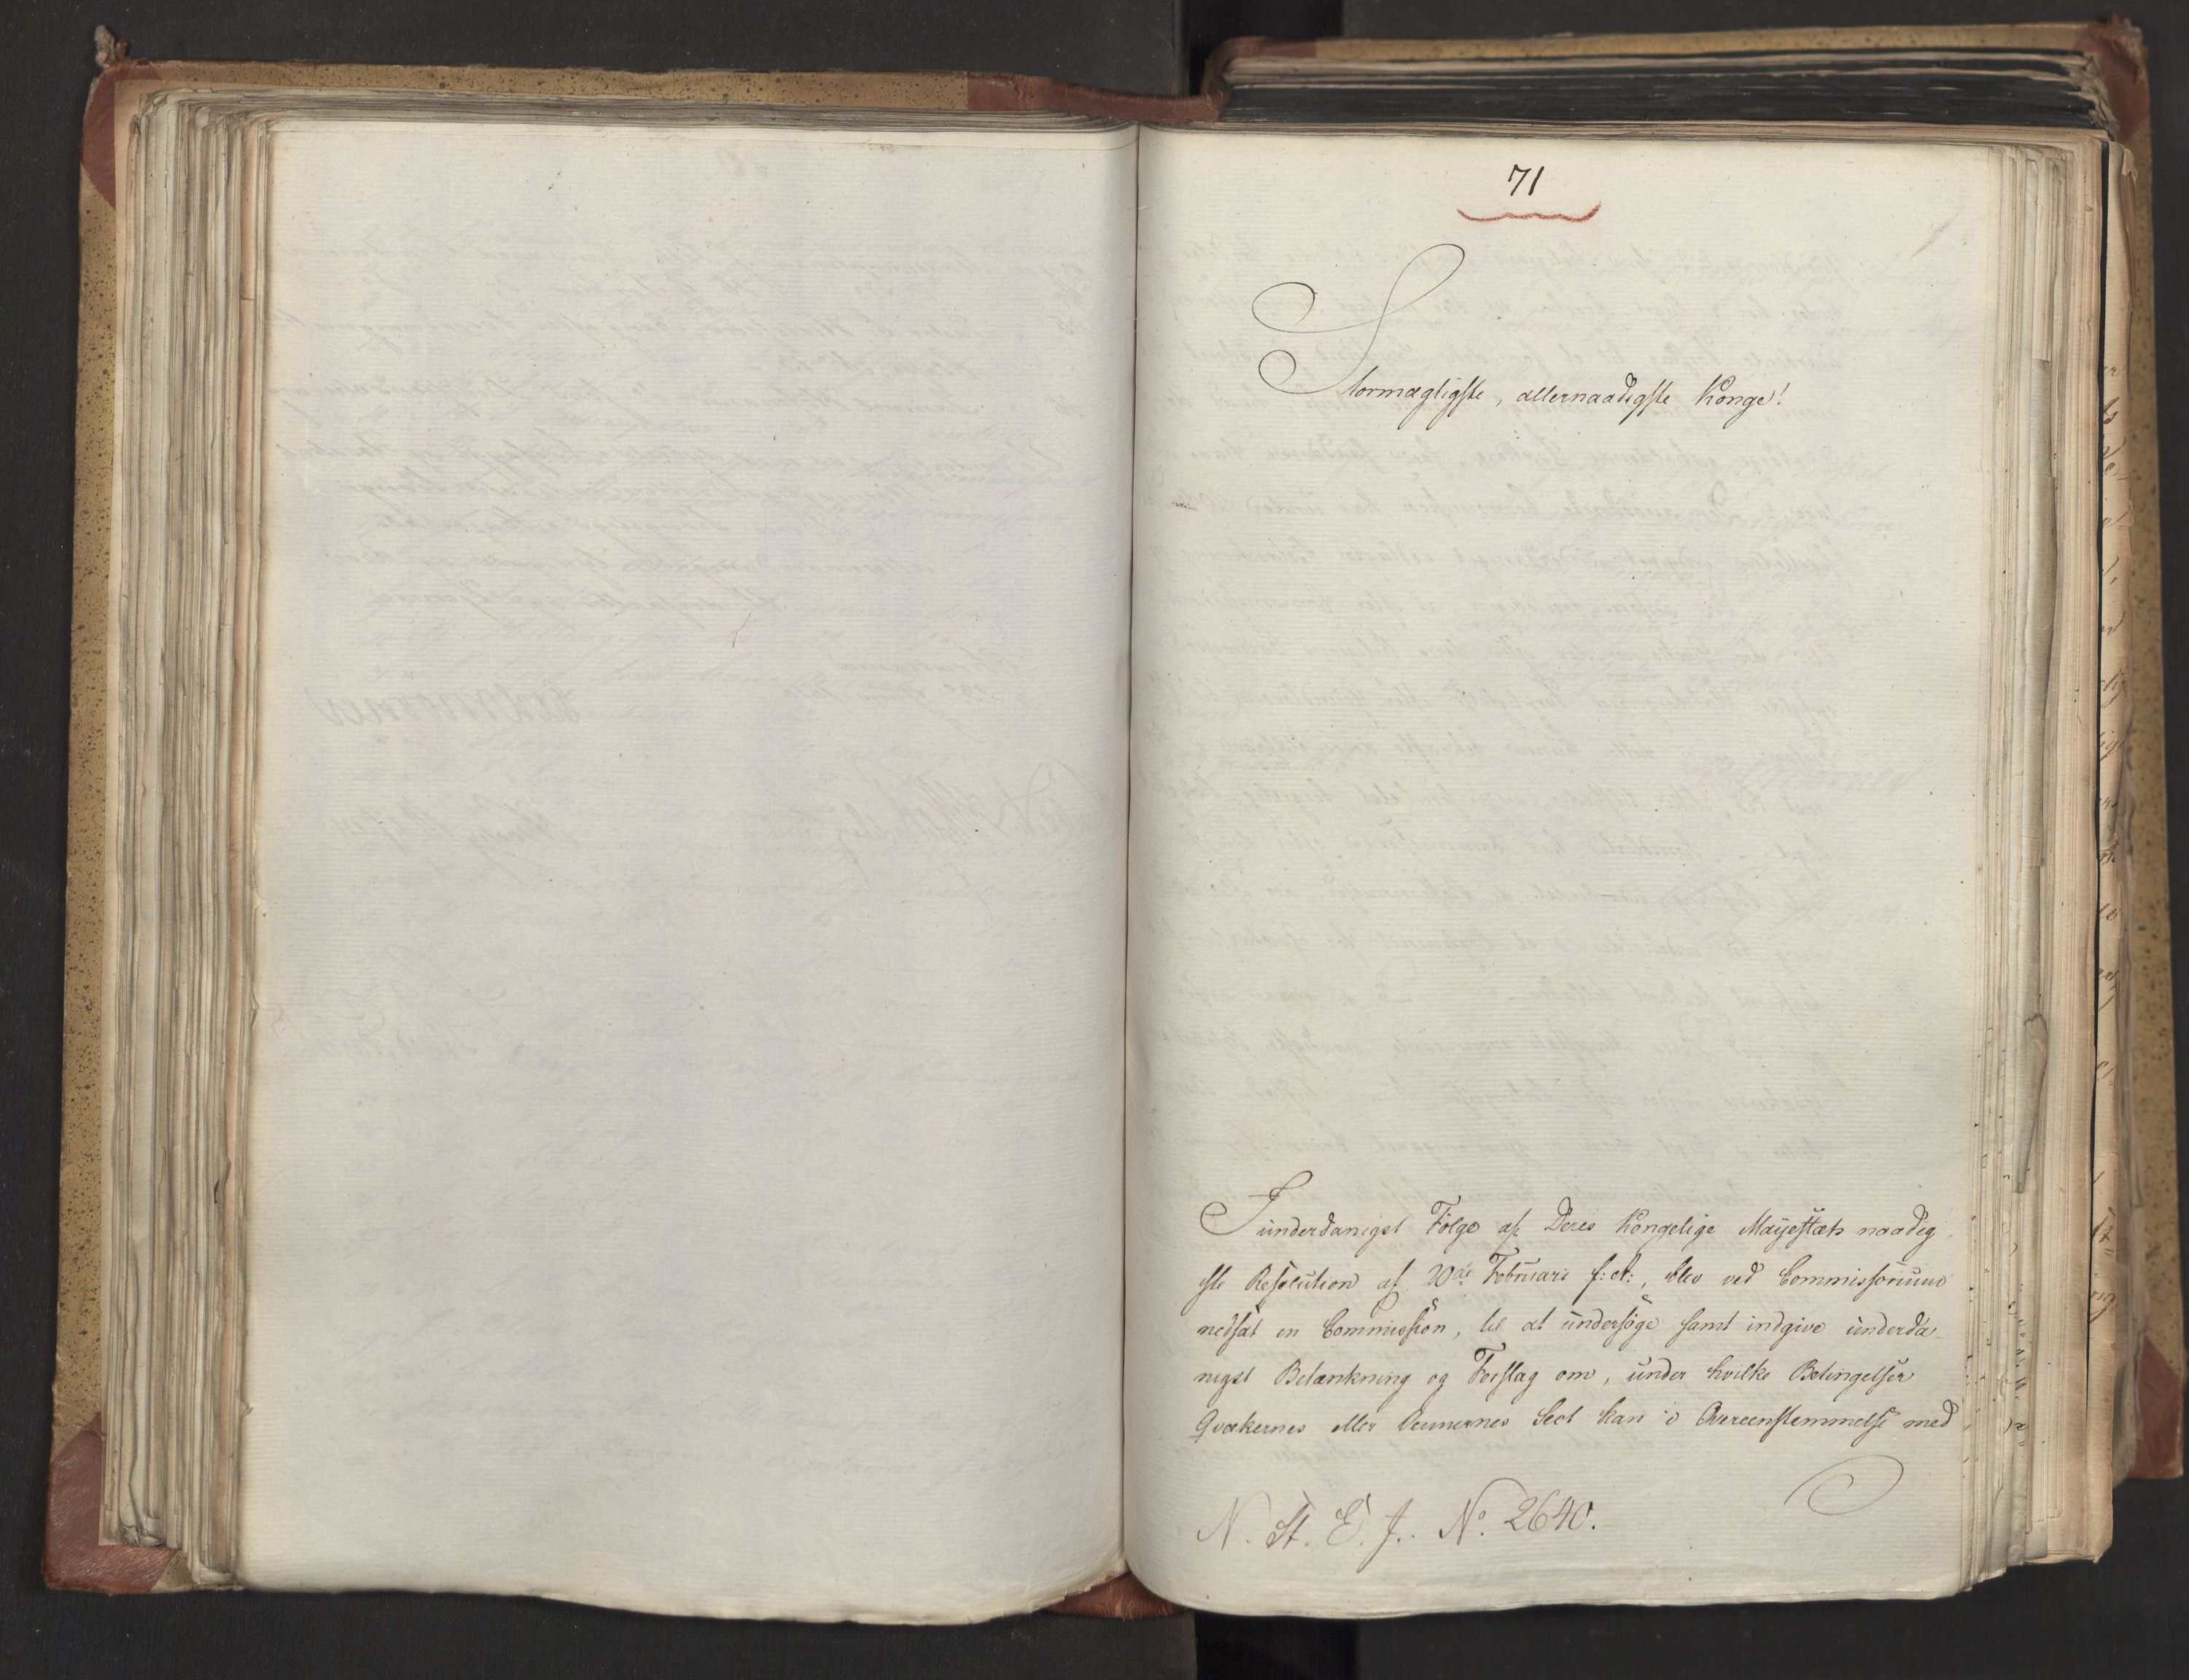 71
Stormægtigste, allernaadigste Konge!
I underdanigst Følge af Deres Kongelige Majestæts naadig-
ste Resolution af 20de Februari f: A:, blev ved Commissorium
nedsat en Commission, til at undersøge samt indgive underda-
nigst Betænkning og Forslag om, under hvilke Betingelser
Qvækernes eller Vennernes Sect kan i Overeensstemmelse med
N. St. E. J. No. 2640.